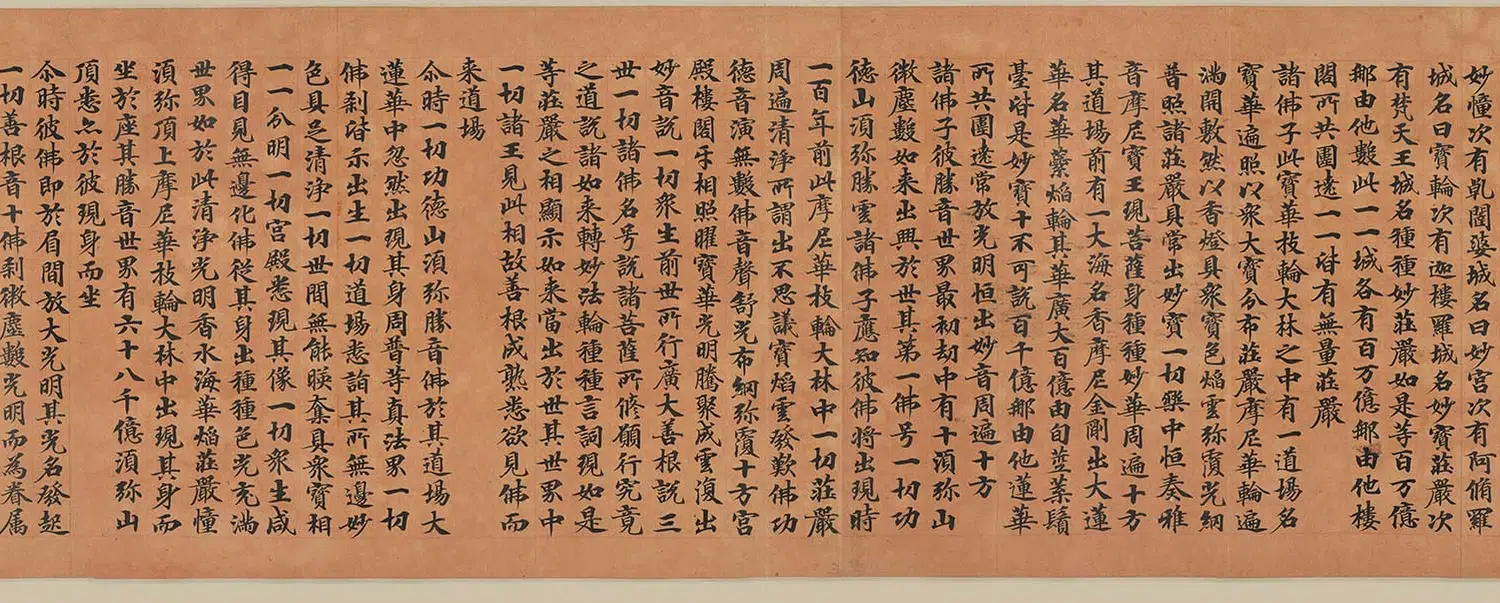 妙憧次有乹闥婆城名曰妙宫次有阿脩羅
城名曰寶輪次有迦樓羅城名妙寶莊嚴次
有梵天王城名種種妙莊嚴如是等百万億
那由他數此一一城各有百万億那由他樓
閣所共圍遶一一皆有無量莊嚴
諸佛子此寶華枝輪大林之中有一道場名
寶華遍照以衆大寶分布莊嚴摩尼華輪遍
滿開敷然以香燈具衆寶色焰雲弥覆光網
普照諸莊嚴具常出妙寶一切樂中恒奏雅
音摩尼寶王現菩薩身種種妙華周遍十方
其道場前有一大海名香摩尼金剛出大蓮
華名華蘂焰輪其華廣大百億由旬莖葉鬚
臺皆是妙寶十不可說百千億那由他蓮華
所共圍遶常放光明恒出妙音周遍十方
諸佛子彼勝音世界最初劫中有十須弥山
微塵數如来出興於世其第一佛号一切功
德山須弥勝雲諸佛子應知彼佛將出現時
一百年前此摩尼華枝輪大林中一切莊嚴
周遍清淨所謂出不思議寶焰雲發歎佛功
德音演無數佛音聲舒光布網弥覆十方宫
殿樓閣㸦相照曜寶華光明騰聚成雲復出
妙音說一切衆生前世所行廣大善根說三
世一切諸佛名号說諸菩薩所修願行究竟
之道說諸如来轉妙法輪種種言詞現如是
等莊嚴之相顯示如来當出於世其世界中
一切諸王見此相故善根成熟悉欲見佛而
来道場
尒時一切功德山須弥勝音佛於其道場大
蓮華中忽然出現其身周普等真法界一切
佛剎皆示出生一切道場悉詣其所無邊妙
色具足清淨一切世間無能暎奪具衆寶相
一一分明一切宫殿悉現其像一切衆生咸
得目見無邊化佛從其身出種種色光充滿
世界如於此清淨光明香水海華焰莊嚴憧
須弥頂上摩尼華枝輪大林中出現其身而
坐於座其勝音世界有六十八千億須弥山
頂悉亦於彼現身而坐
尒時彼佛即於眉間放大光明其光名發起
一切善根音十佛剎微塵數光明而為眷属